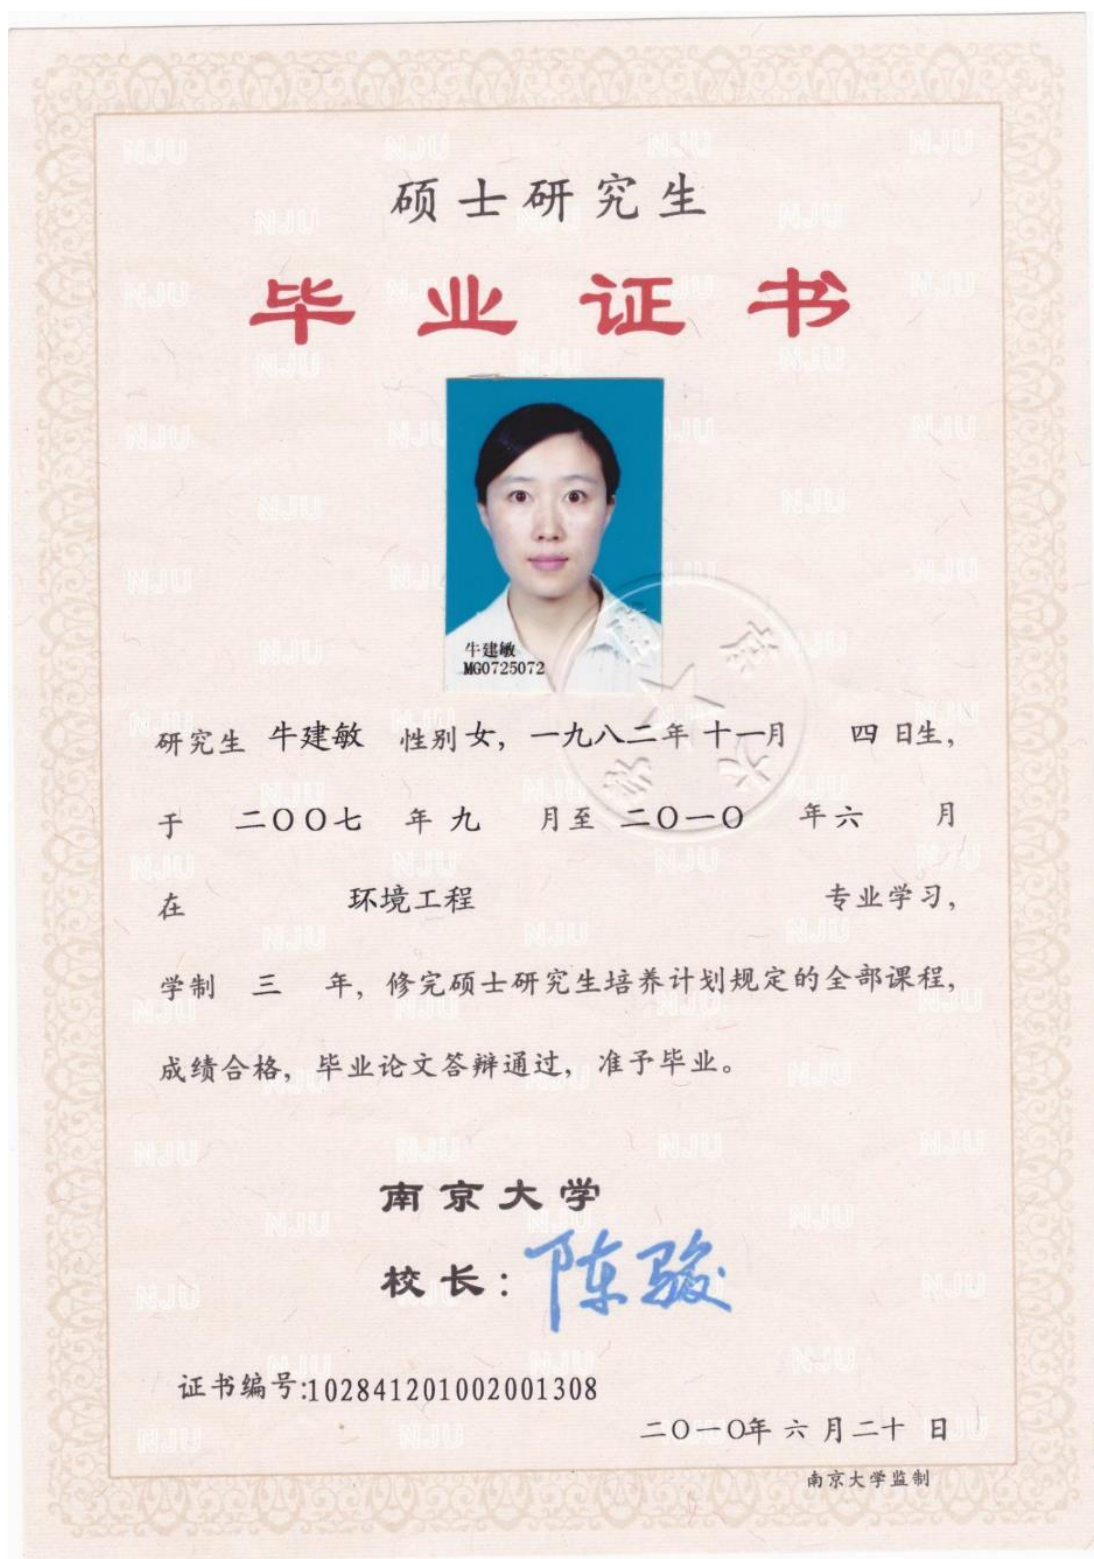 硕士研究生
毕业证书
牛建敏
MG0725072
研究生 牛建敏 性别 女，一九八二年 十一月 四 日生，
于 二〇〇七 年 九 月至 二〇一〇 年 六 月
在 环境工程 专业学习，
学制 三 年，修完硕士研究生培养计划规定的全部课程，
成绩合格，毕业论文答辩通过，准予毕业。
南京大学
校长：陈骏
证书编号:102841201002001308
二〇一〇年 六 月二十 日
南京大学监制